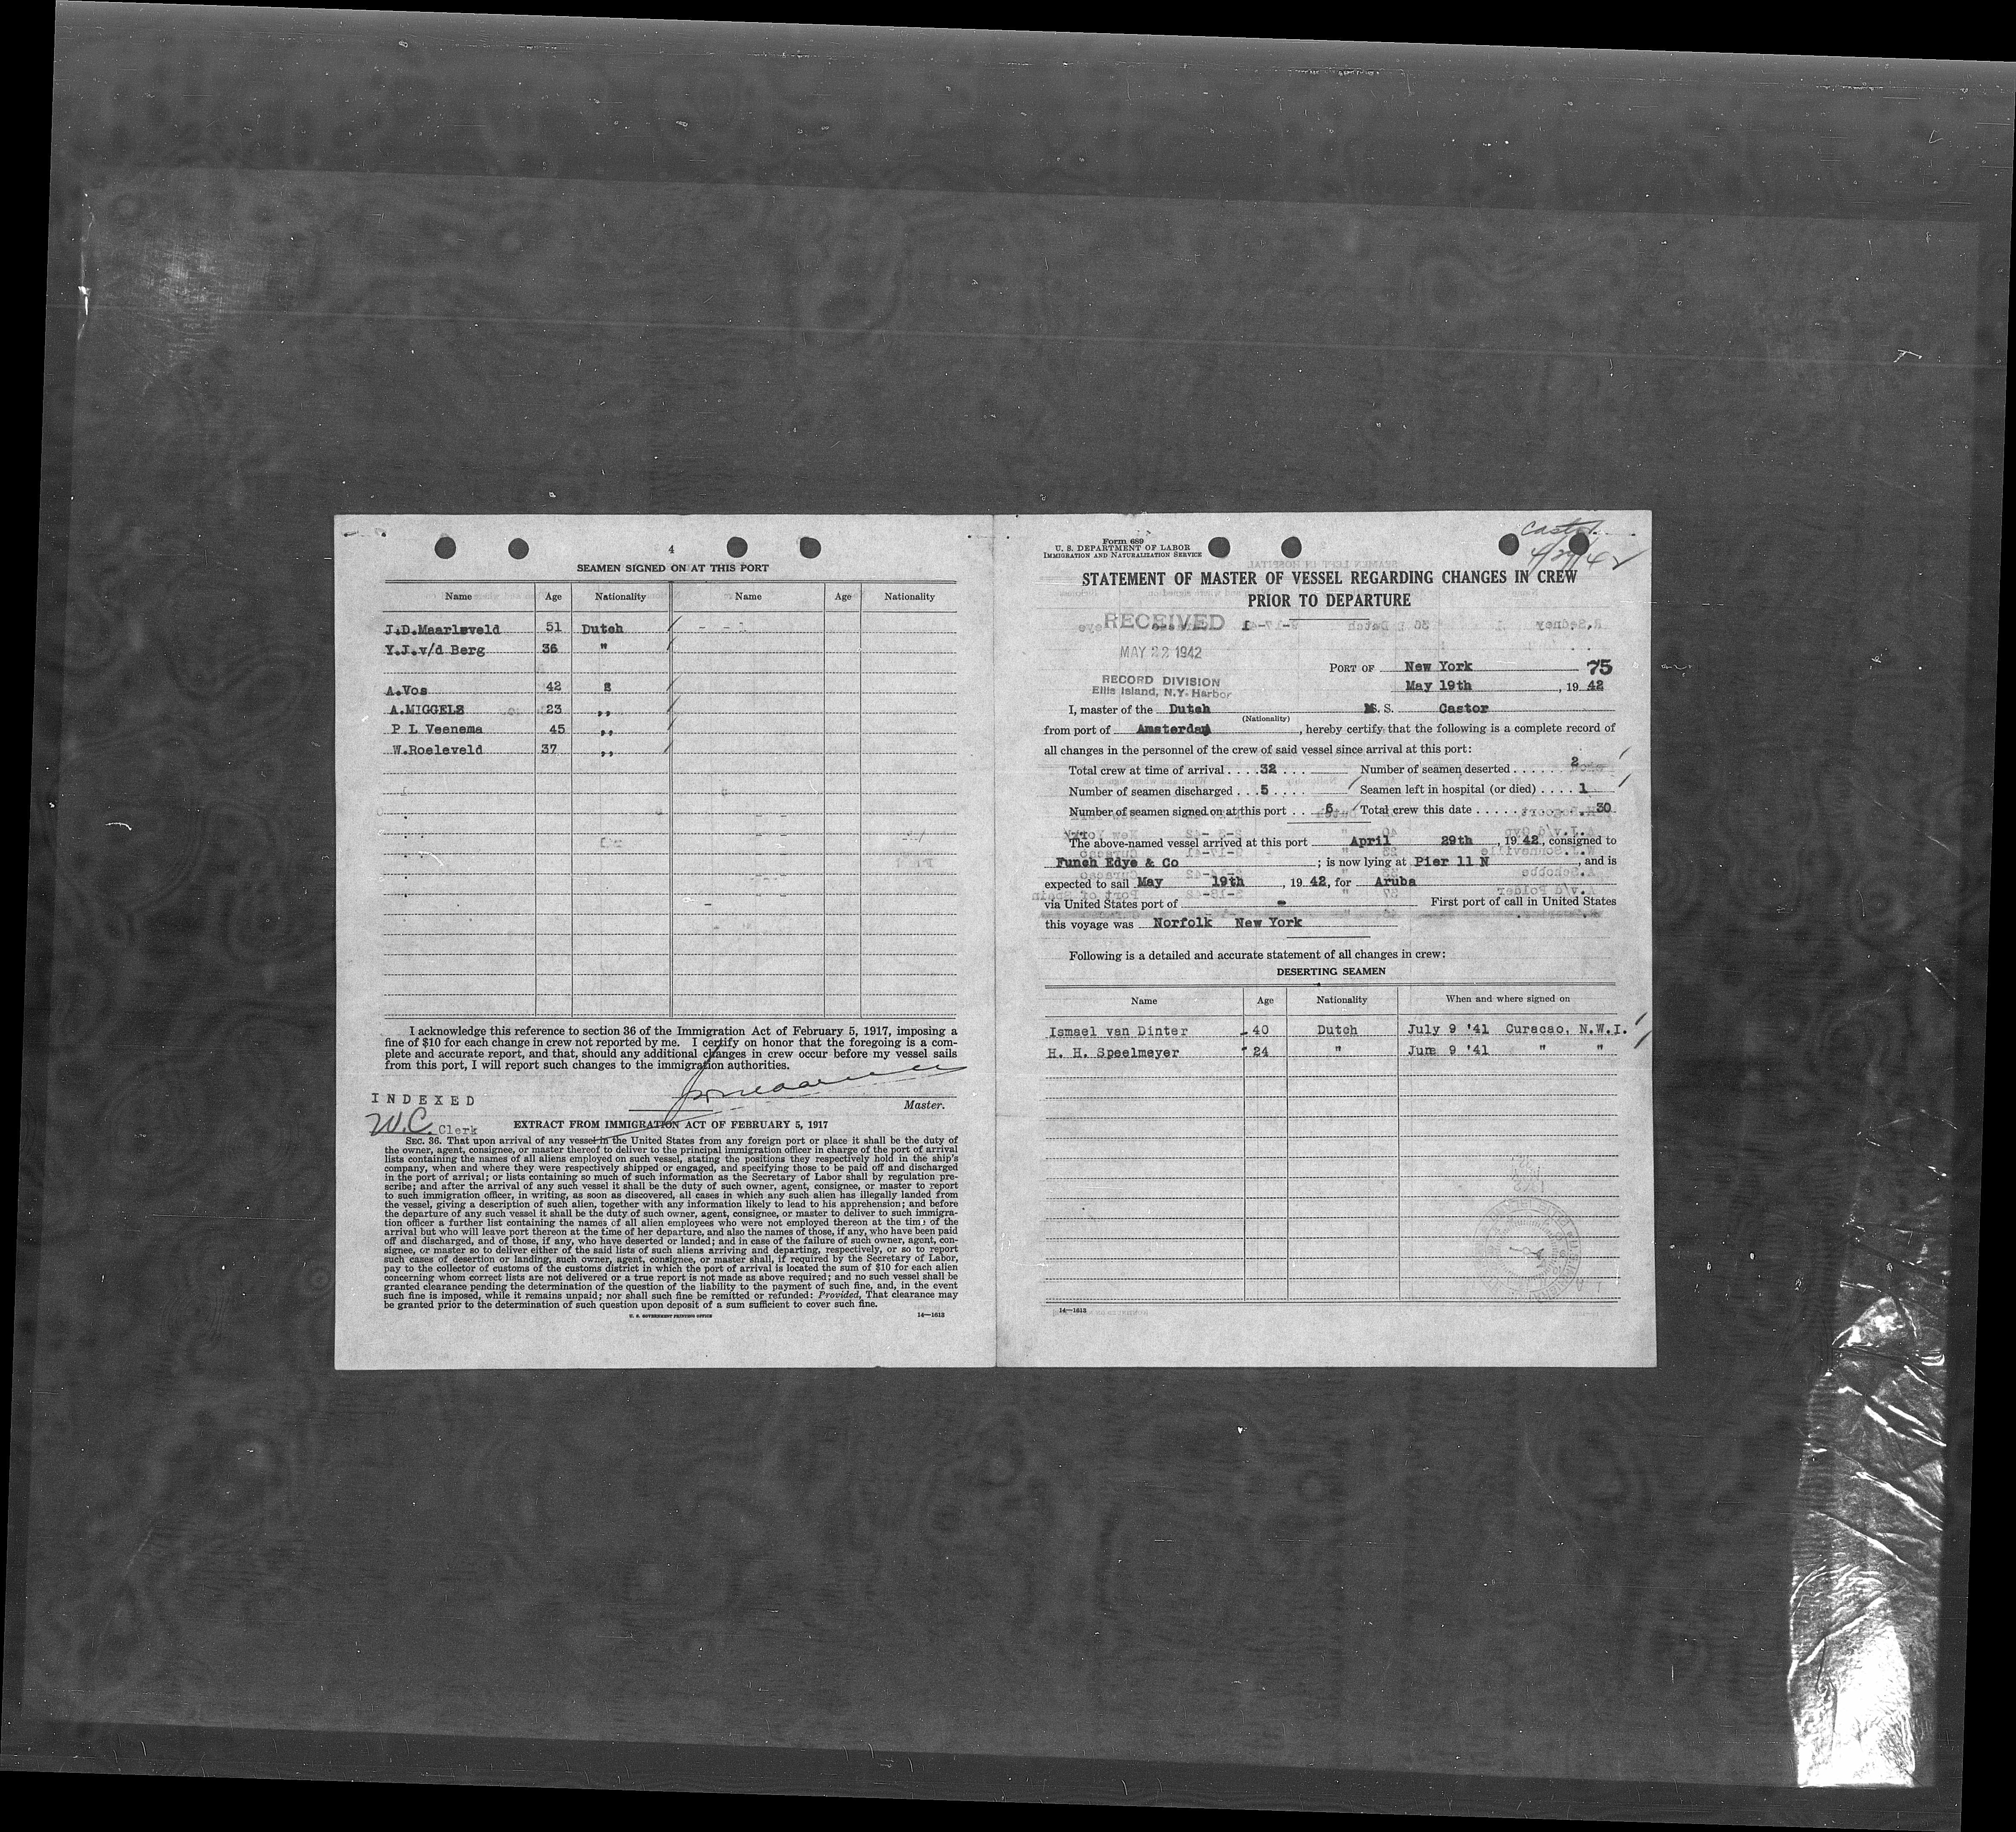 4
SEAMEN SIGNED ON AT THIS PORT
Name Age Nationality Name Age Nationality
J.D.Maarleveld 51 Dutch
Y.J.v/d Berg 36 "
A.Vos 42
A.MIGGELS 23 ,,
P L Veenema 45 ,,
W.Roeleveld 37 ,,
I acknowledge this reference to section 36 of the Immigration Act of February 5, 1917, imposing a
fine of $10 for each change in crew not reported by me. I certify on honor that the foregoing is a com-
plete and accurate report, and that, should any additional changes in crew occur before my vessel sails
from this port, I will report such changes to the immigration authorities.
Master.
INDEXED
W.C. Clerk
EXTRACT FROM IMMIGRATION ACT OF FEBRUARY 5, 1917
SEC. 36. That upon arrival of any vessel in the United States from any foreign port or place it shall be the duty of
the owner, agent, consignee, or master thereof to deliver to the principal immigration officer in charge of the port of arrival
lists containing the names of all aliens employed on such vessel, stating the positions they respectively hold in the ship's
company, when and where they were respectively shipped or engaged, and specifying those to be paid off and discharged
in the port of arrival; or lists containing so much of such information as the Secretary of Labor shall by regulation pre-
scribe; and after the arrival of any such vessel it shall be the duty of such owner, agent, consignee, or master to report
to such immigration officer, in writing, as soon as discovered, all cases in which any such alien has illegally landed from
the vessel, giving a description of such alien, together with any information likely to lead to his apprehension; and before
the departure of any such vessel it shall be the duty of such owner, agent, consignee, or master to deliver to such immigra-
tion officer a further list containing the names of all alien employees who were not employed thereon at the time of the
arrival but who will leave port thereon at the time of her departure, and also the names of those, if any, who have been paid
off and discharged, and of those, if any, who have deserted or landed; and in case of the failure of such owner, agent, con-
signee, or master so to deliver either of the said lists of such aliens arriving and departing, respectively, or so to report
such cases of desertion or landing, such owner, agent, consignee, or master shall, if required by the Secretary of Labor,
pay to the collector of customs of the customs district in which the port of arrival is located the sum of $10 for each alien
concerning whom correct lists are not delivered or a true report is not made as above required; and no such vessel shall be
granted clearance pending the determination of the question of the liability to the payment of such fine, and, in the event
such fine is imposed, while it remains unpaid; nor shall such fine be remitted or refunded: Provided, That clearance may
be granted prior to the determination of such question upon deposit of a sum sufficient to cover such fine.
U. S. GOVERNMENT PRINTING OFFICE 14—1613
Castor
4/29/42
Form 689
U. S. DEPARTMENT OF LABOR
IMMIGRATION AND NATURALIZATION SERVICE
STATEMENT OF MASTER OF VESSEL REGARDING CHANGES IN CREW
PRIOR TO DEPARTURE
RECEIVED
MAY 22 1942
RECORD DIVISION
Ellis Island, N.Y. Harbor
PORT OF New York 75
May 19th, 19 42
I, master of the Dutch M.S. Castor
(Nationality)
from port of Amsterdam, hereby certify that the following is a complete record of
all changes in the personnel of the crew of said vessel since arrival at this port:
Total crew at time of arrival . . . . 32 . . . Number of seamen deserted . . . . . . 2
Number of seamen discharged . . . 5 . . . . Seamen left in hospital (or died) . . . . 1
Number of seamen signed on at this port . . 6 Total crew this date . . . . . . 30
The above-named vessel arrived at this port April 29th, 19 42, consigned to
Funch Edye & Co ; is now lying at Pier 11 N, and is
expected to sail May 19th, 19 42, for Aruba
via United States port of - First port of call in United States
this voyage was Norfolk New York
Following is a detailed and accurate statement of all changes in crew:
DESERTING SEAMEN
Name Age Nationality When and where signed on
Ismael van Dinter 40 Dutch July 9 '41 Curacao, N.W.I.
H. H. Speelmeyer 24 " June 9 '41 " "
14—1613